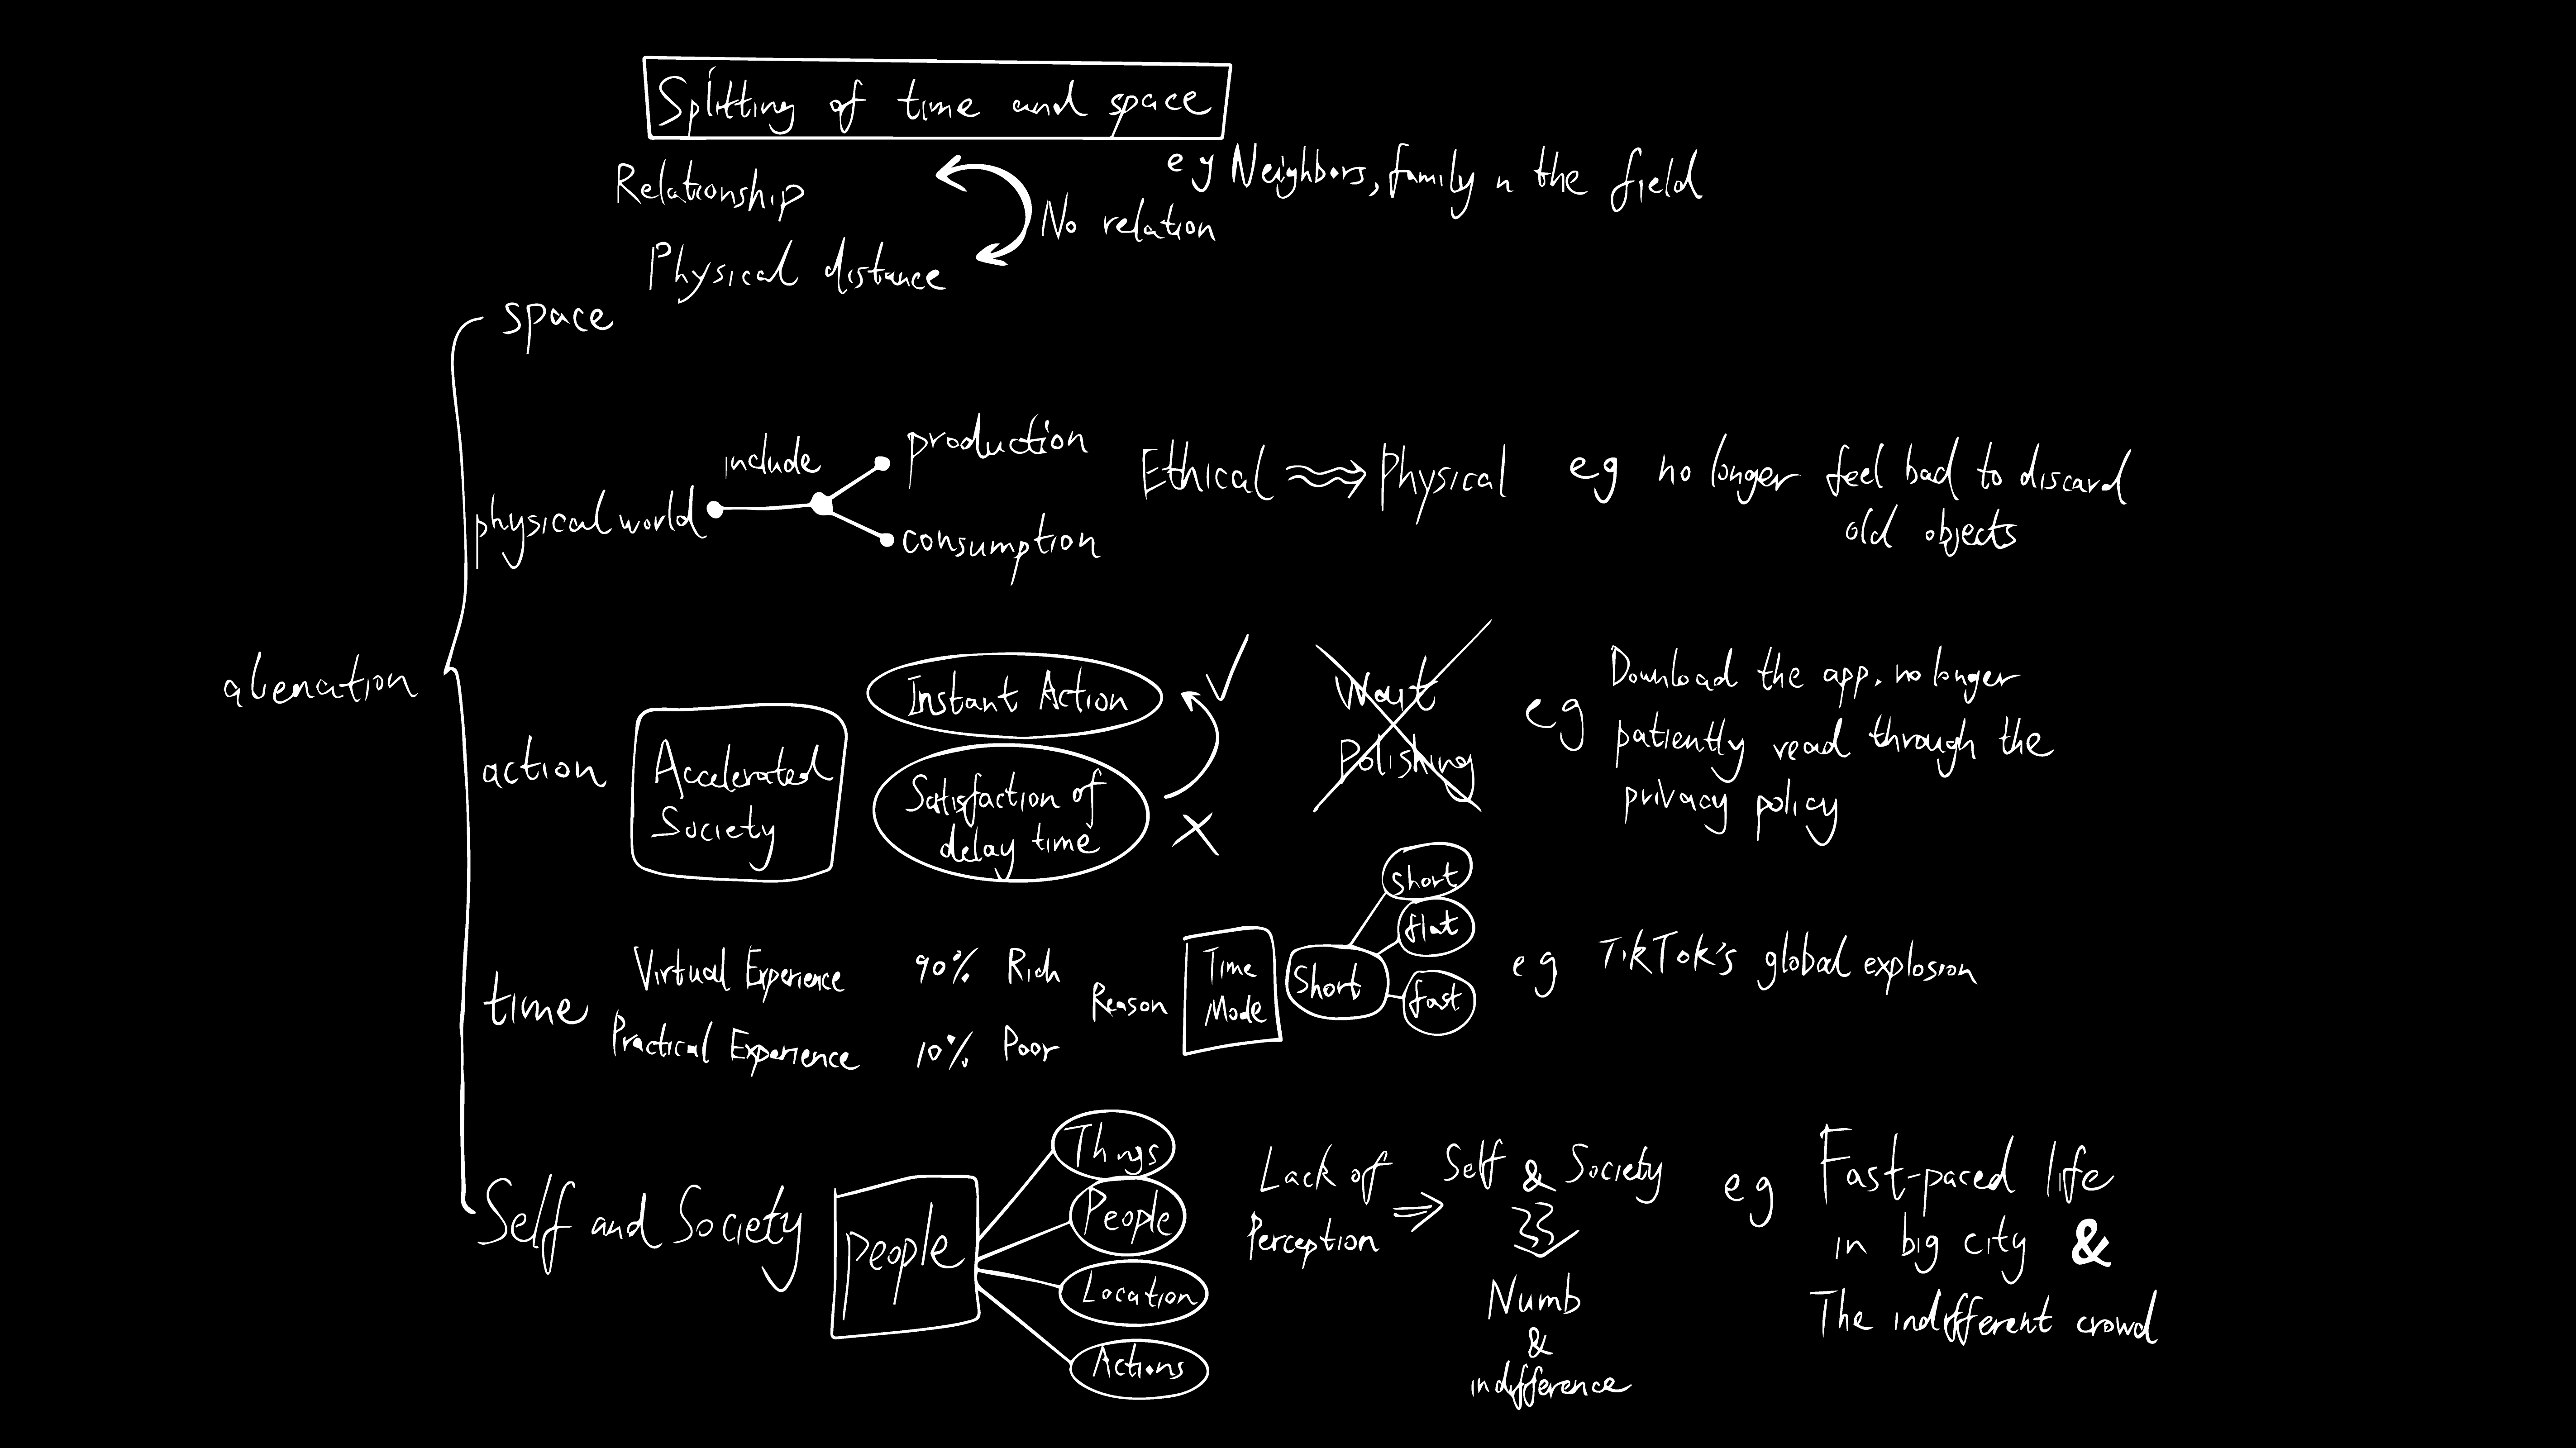 Splitting of time and space
Relationship
e g Neighbors, family n the field
No relation
Physical distance
space
include
production
physical world
consumption
Ethical
Physical
eg no longer feel bad to discard
old objects
alienation
action
Accelerated
Society
Instant Action
Satisfaction of
delay time
Wait
Polishing
eg
Download the app, no longer
patiently read through the
privacy policy
time
Virtual Experience 90% Rich
Practical Experience 10% Poor
Reason
Time
Mode
Short
short
flat
fast
eg TikTok's global explosion
Self and Society
people
Things
People
Location
Actions
Lack of
Perception
Self & Society
Numb
&
indifference
eg
Fast-paced life
in big city &
The indifferent crowd